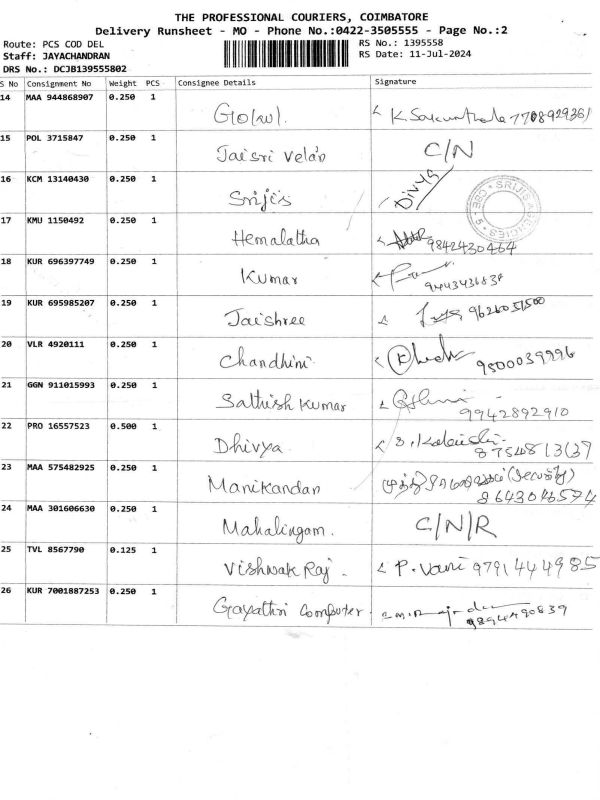 THE PROFESSIONAL COURIERS, COIMBATORE
Delivery Runsheet - MO - Phone No.:0422-3505555 - Page No.:2
Route: PCS COD DEL
Staff: JAYACHANDRAN
DRS No.: DCJB139555802
RS No.: 1395558
RS Date: 11-Jul-2024
S No Consignment No Weight PCS Consignee Details Signature
14 MAA 944868907 0.250 1 Gokul. K Sakunthala 7708929361
15 POL 3715847 0.250 1 Jaisri Velan C/N
16 KCM 13140430 0.250 1 Srijis Divya SRIJIS AGENCIES CBE - 5
17 KMU 1150492 0.250 1 Hemalatha 9842430464
18 KUR 696397749 0.250 1 Kumar
19 KUR 695985207 0.250 1 Jaishree 9626051500
20 VLR 4920111 0.250 1 Chandhini 9500039996
21 GGN 911015993 0.250 1 Sathish Kumar 9942892910
22 PRO 16557523 0.500 1 Dhivya 8754813137
23 MAA 575482925 0.250 1 Manikandan 8643046574
24 MAA 301606630 0.250 1 Mahalingam. C/N/R
25 TVL 8567790 0.125 1 Vishwak Raj. P. Vani 9791444985
26 KUR 7001887253 0.250 1 Gayathri Computer. 9894490839